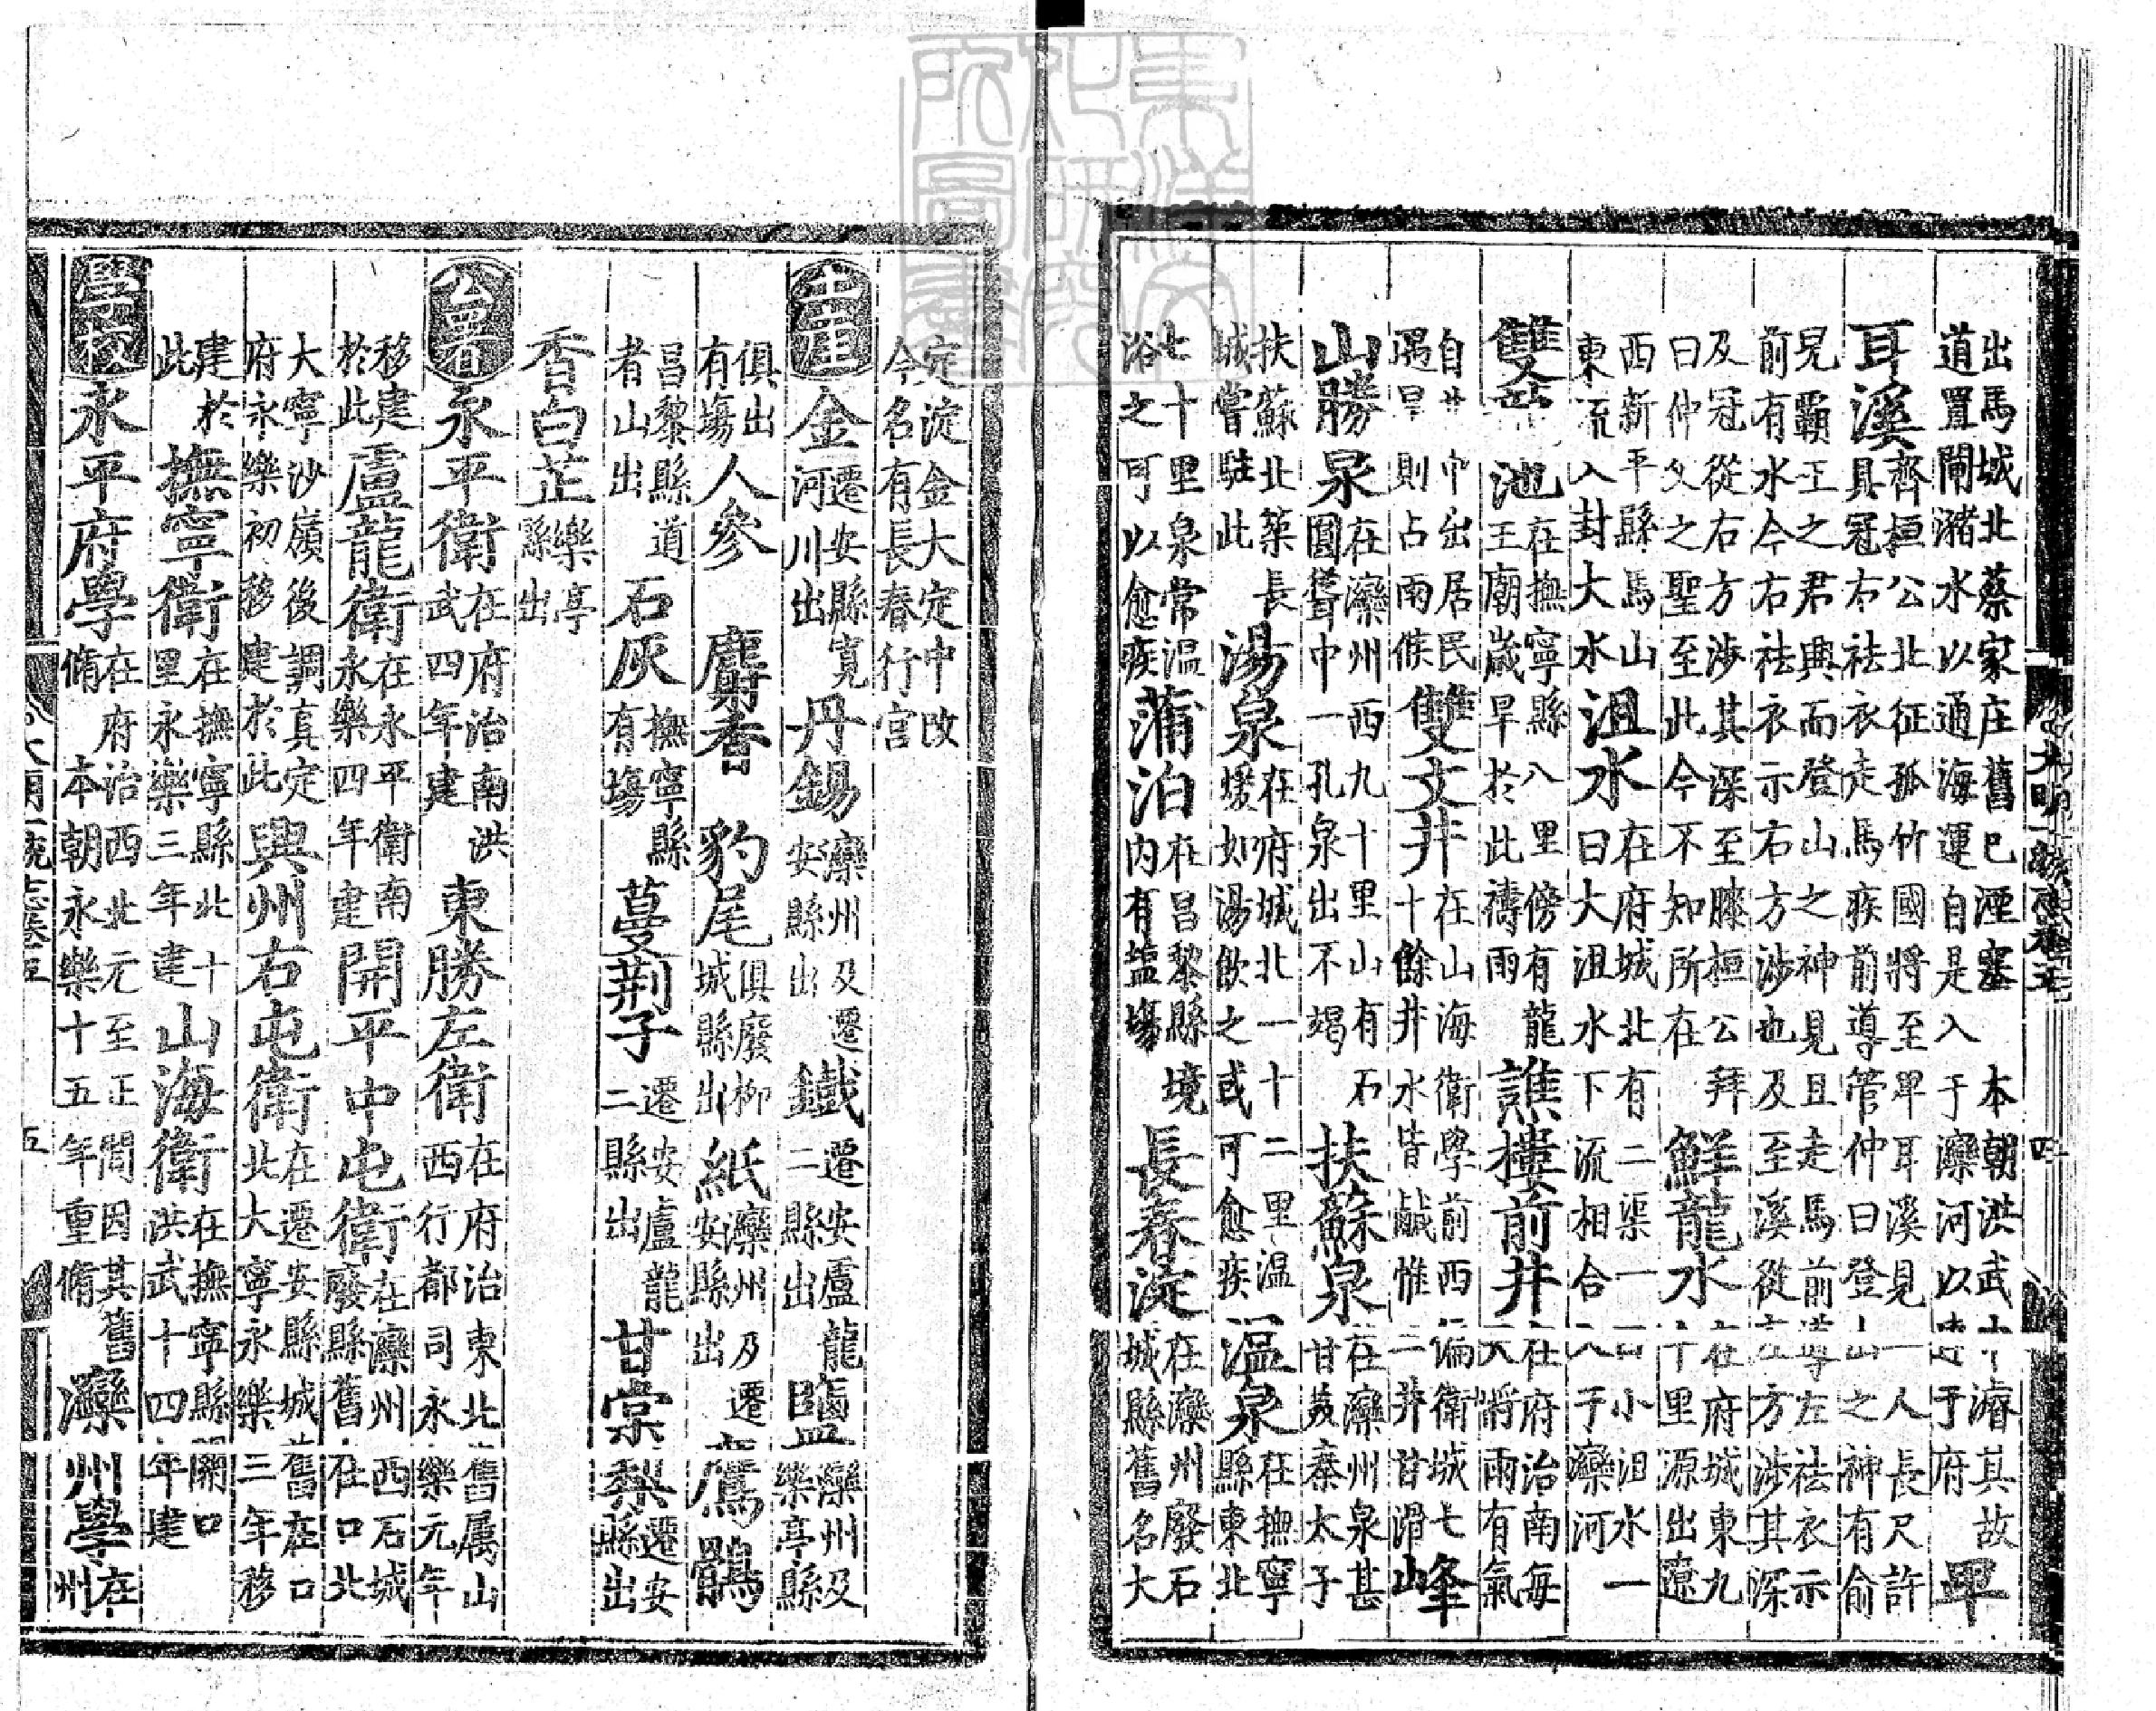 出馬城北蔡家庄舊已湮塞 本朝洪武中濬其故道置閘瀦水以通海運自是入于灤河以達于府卑
耳溪齊桓公北征孤竹國將至卑耳溪見一人長尺許具冠右袪衣走馬疾前導管仲曰登山之神有俞
兒霸王之君興而登山之神見且走馬前導左袪衣示前有水今右袪衣示右方涉也及至溪從左方涉其深
及冠從右方涉其深至膝桓公拜曰仲父之聖至此今不知所在鮮龍水在府城東九十里源出遼
西新平縣馬山東流入封大水沮水在府城北有二渠一曰小沮水一曰大沮水下流相合入于灤河
雙池在撫寧縣八里傍有龍王廟歲旱於此禱雨譙樓前井在府治南每天將雨有氣
自井中出居民遇旱則占雨候雙文井在山海衛學前西偏衛城七十餘井水皆鹹惟二井甘滑峰
山勝泉在灤州西九十里山有石圓聳中一孔泉出不竭扶蘇泉在灤州泉甚甘美秦太子
扶蘇北築長城嘗駐此湯泉在府城北一十二里温煖如湯飲之或可愈疾温泉在撫寧縣東北
七十里泉常温浴之可以愈疾蒲泊在昌黎縣境内有塩塲長春淀在灤州廢石城縣舊名大
定淀金大定中改今名有長春行宫
土産金遷安縣寛河川出丹錫灤州及遷安縣出鐵遷安盧龍二縣出鹽灤州及樂亭縣
俱出有塲人參麝香豹尾俱廢柳城縣出紙灤州及遷安縣出鷹鶻
昌黎縣道者山出石灰撫寧縣有塲蔓荆子遷安盧龍二縣出甘棠梨遷安縣出
香白芷樂亭縣出
公署永平衛在府治南洪武四年建東勝左衛在府治東北舊属山西行都司永樂元年
移建於此盧龍衛在永平衛南永樂四年建開平中屯衛在灤州西石城廢縣舊在口北
大寧沙嶺後調真定府永樂初移建於此興州右屯衛在遷安縣城舊在口北大寧永樂三年移
建於此撫寧衛在撫寧縣北十里永樂三年建山海衛在撫寧縣關口洪武十四年建
學校永平府學在府治西北元至正間因其舊脩本朝永樂十五年重脩灤州學在州
大明一統志卷五
四
大明一統志卷五
五
東洋文化研究所圖書